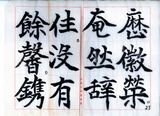 歷徽榮
奄然辭
往沒有
餘馨鐫
23